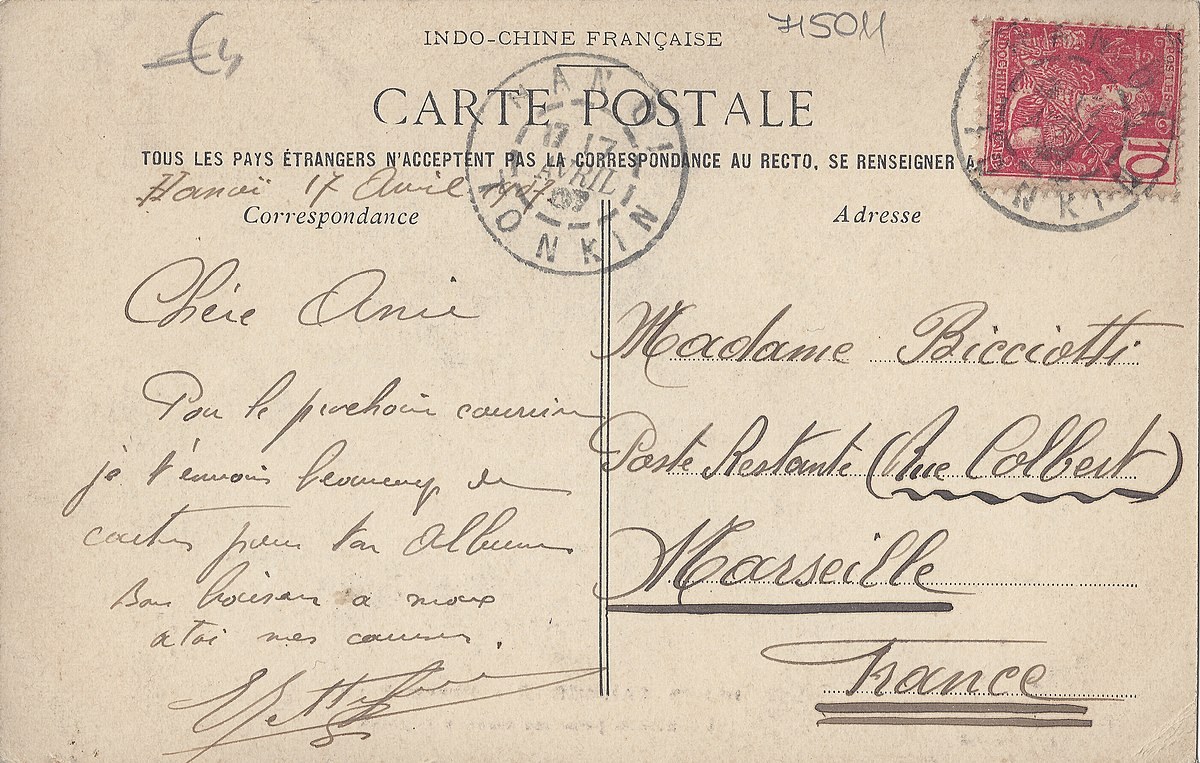 75011
INDO-CHINE FRANÇAISE
CARTE POSTALE
TOUS LES PAYS ÉTRANGERS N'ACCEPTENT PAS LA CORRESPONDANCE AU RECTO. SE RENSEIGNER A
HANOI
17
AVRIL
07
TONKIN
10
TONKIN
Hanoï 17 Avril 1907
Correspondance
Adresse
Chère Amie
Par le prochain courrier
je t'envois beaucoup de
cartes pour ton Album
Bon baisers a
a toi mes
Madame Bicciotti
Poste Restante (Rue Colbert)
Marseille
France